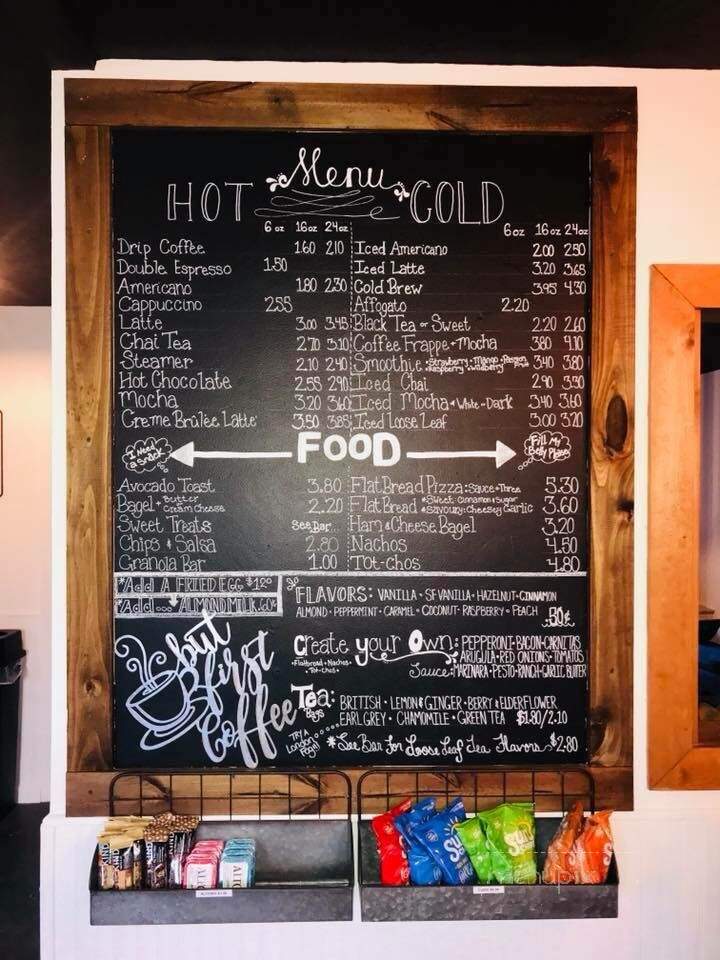 Menu
HOT COLD
6 oz 16 oz 24 oz
6 oz 16 oz 24 oz
Drip Coffee 1.60 2.10
Double Espresso 1.50
Americano 1.80 2.30
Cappuccino 2.55
Latte 3.00 3.45
Chai Tea 2.70 3.10
Steamer 2.10 2.40
Hot Chocolate 2.55 2.90
Mocha 3.20 3.60
Creme Brûlée Latte 3.50 3.85
Iced Americano 2.00 2.50
Iced Latte 3.20 3.65
Cold Brew 3.95 4.30
Affogato 2.20
Black Tea or Sweet 2.20 2.60
Coffee Frappe + Mocha 3.80 4.10
Smoothie • Strawberry • Mango • Passion • Raspberry • Wildberry 3.40 3.80
Iced Chai 2.90 3.30
Iced Mocha • White or Dark 3.40 3.60
Iced Loose Leaf 3.00 3.20
I Need a Snack
FOOD
Fill My Belly Please
Avocado Toast 3.80
Bagel + Butter Cream Cheese 2.20
Sweet Treats See Bar
Chips & Salsa 2.80
Granola Bar 1.00
FlatBread Pizza: Sauce + Three 5.30
FlatBread • Sweet: Cinnamon & Sugar • Savoury: Cheesey Garlic 3.60
Ham & Cheese Bagel 3.20
Nachos 4.50
Tot-chos 4.80
*Add A FRIED EGG $1.20
*Add ... ALMOND MILK .60¢
FLAVORS: VANILLA • SF VANILLA • HAZELNUT • CINNAMON
ALMOND • PEPPERMINT • CARAMEL • COCONUT • RASPBERRY • PEACH .50¢
but first Coffee
Create your Own: PEPPERONI • BACON • CARNITAS
• Flatbread • Nachos • Tot-chos •
• ARUGULA • RED ONIONS • TOMATOS
Sauce: MARINARA • PESTO • RANCH • GARLIC BUTTER
Tea: Bags
BRITISH • LEMON & GINGER • BERRY & ELDERFLOWER
EARL GREY • CHAMOMILE • GREEN TEA $1.80/2.10
TRY A London Fog!!
*See Bar For Loose Leaf Tea Flavors $2.80